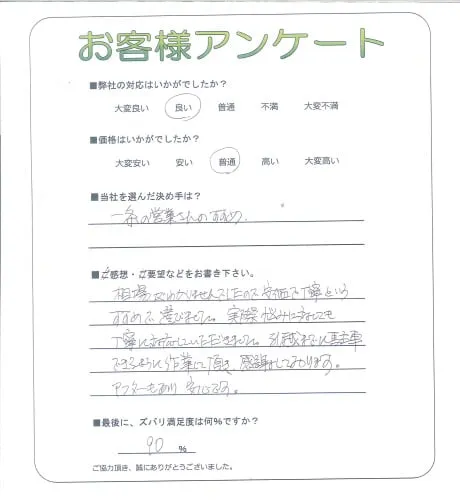 お客様アンケート
■弊社の対応はいかがでしたか？
大変良い 良い 普通 不満 大変不満
■価格はいかがでしたか？
大変安い 安い 普通 高い 大変高い
■当社を選んだ決め手は？
一条の営業さんのすすめ。
■ご感想・ご要望などをお書き下さい。
相場がわかりませんでしたので安価で丁寧という
すすめで選びました。実際悩みに対しても
丁寧に対応していただきました。引越までに駐車
できるように作業して頂き、感謝しております。
アフターもあり安心です。
■最後に、ズバリ満足度は何%ですか？
90 %
ご協力頂き、誠にありがとうございました。